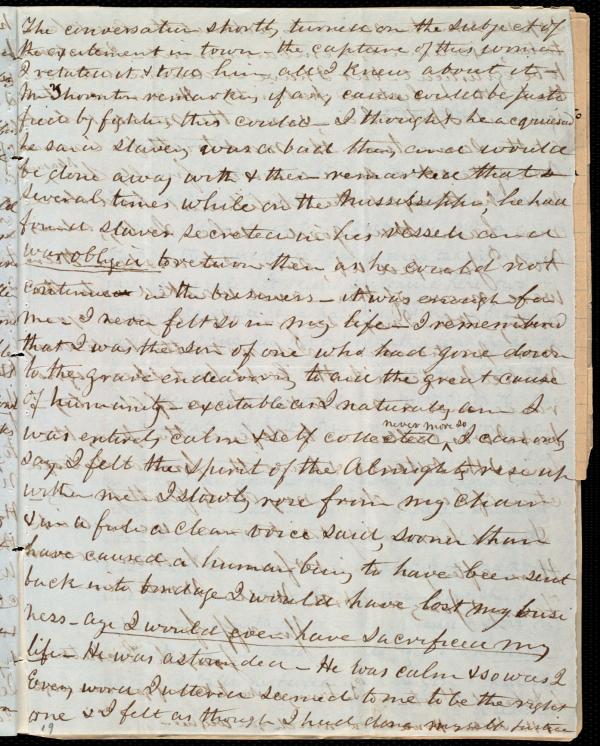 The conversation shortly turned on the subject of
the excitement in town - the capture of this woman
I related it & told him all I knew about it -
Mr Thornton remarked if any cause could be justi
fied by fighting this could - I thought he acquiesced
he said slavery was a bad thing and would
be done away with & then remarked that
several times while on the Mississippi, he had
found slaves secreted in his vessel and
was obliged to return them as he could not
continue in the business - it was enough for
me - I never felt so in my life - I remembered
that I was the son of one who had gone down
to the grave endeavoring to aid the great cause
of humanity - excitable as I naturally am I
was entirely calm & self collected, never more so I can only
say I felt the spirit of the Almighty rise up
within me - I slowly rose from my chair
& in a full & clear voice said, sooner than
have caused a human being to have been sent
back into bondage I would have lost my busi
ness - aye I would even have sacrificed my
life - He was astounded - He was calm & so was I
Every word I uttered seemed to me to be the right
one & I felt as though I had done myself justice
19